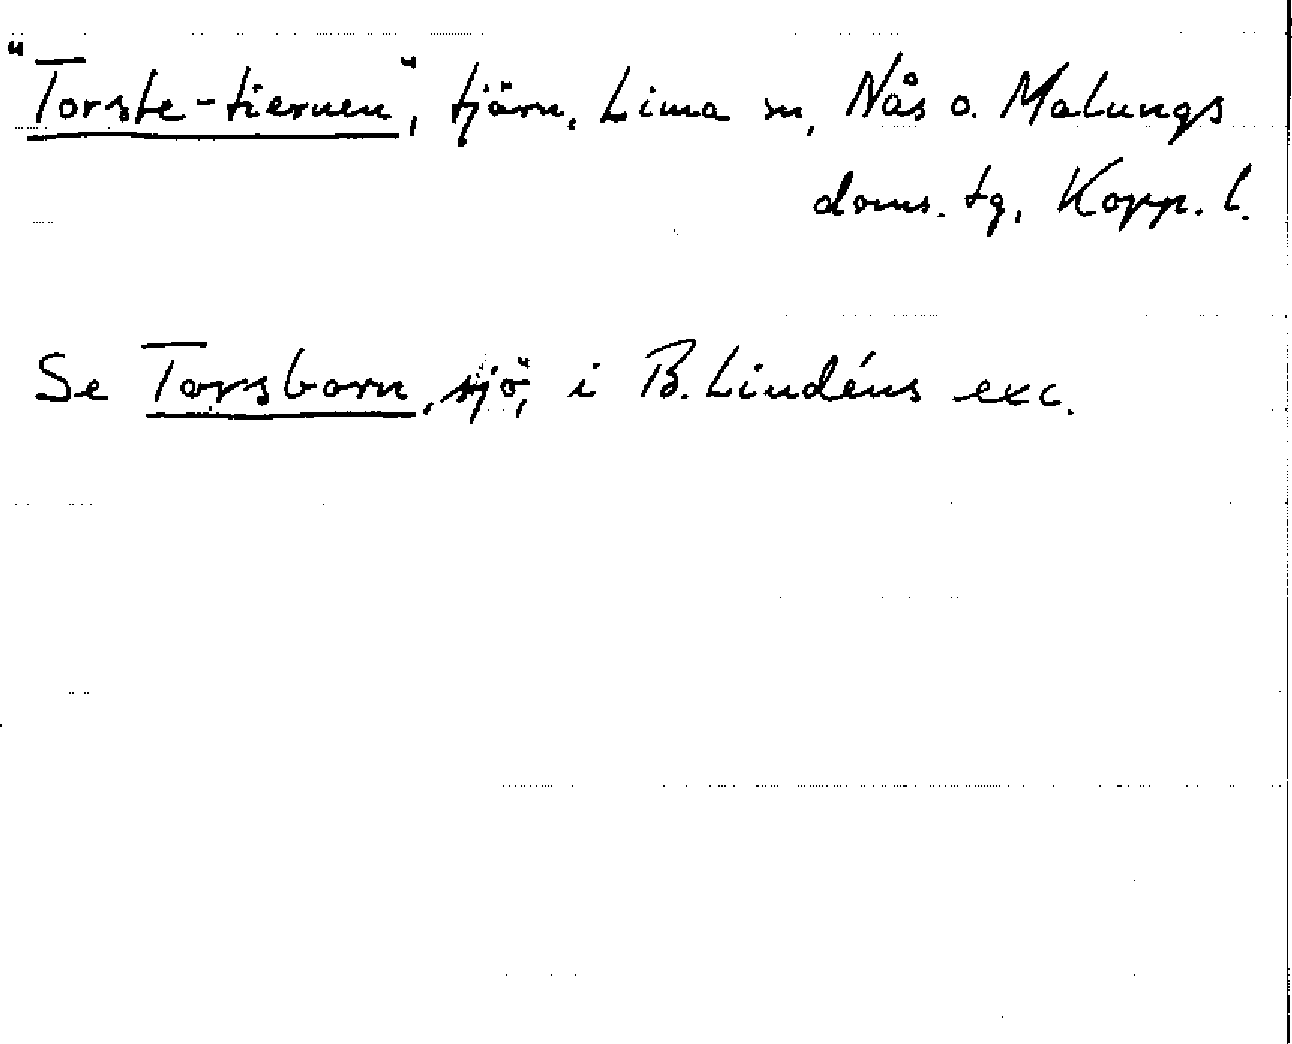 "Torste-tiernen", tjärn, Lima sn, Nås o. Malungs
doms. tg, Kopp. l.
Se Torsborn, sjö, i B. Lindéns exc.